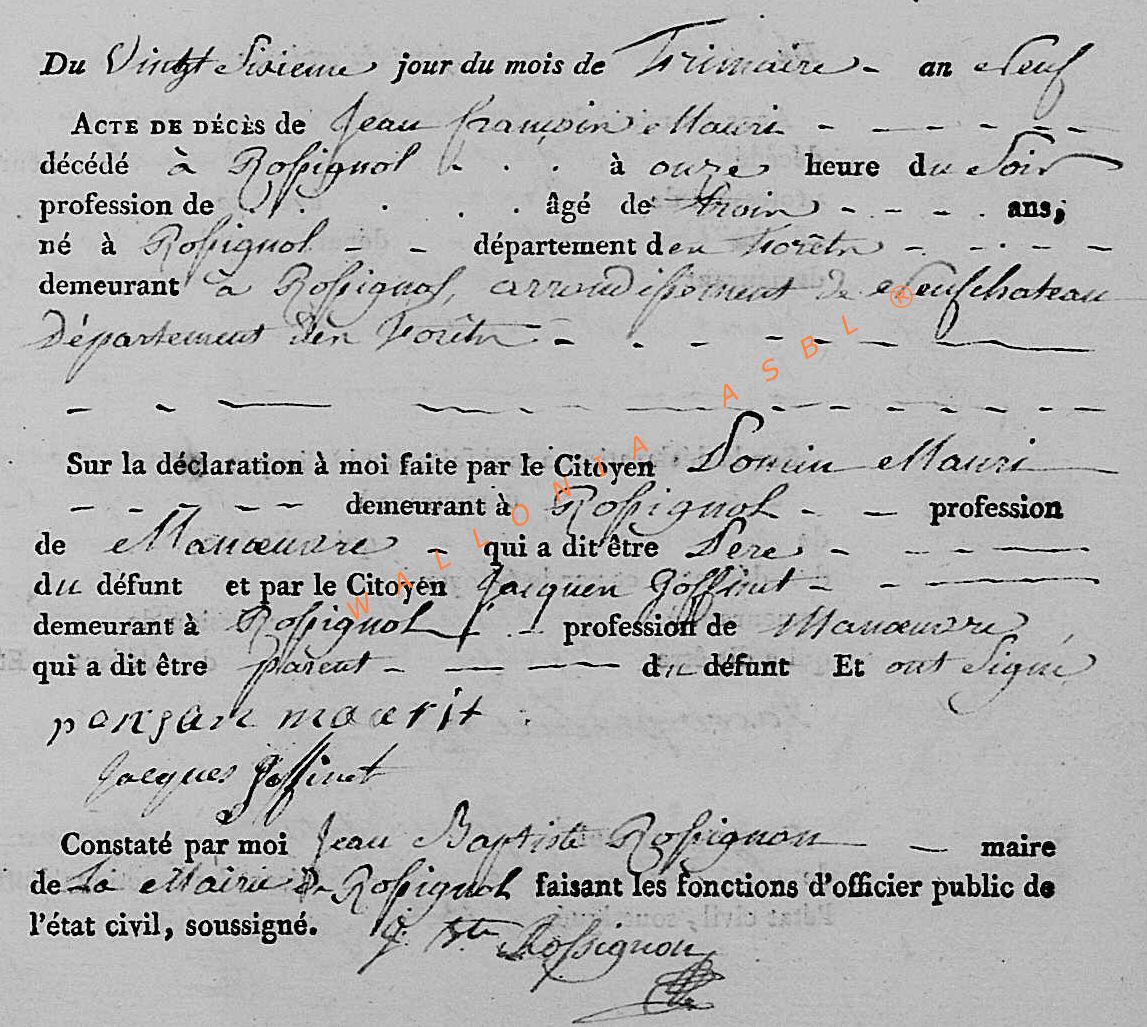 Du Vingt Sixieme jour du mois de Frimaire - an Neuf
ACTE DE DÉCÈS de Jean françois Mauri - - - - - -
décédé à Rossignol - . . à onze heure du Soir
profession de . . . . . . âgé de trois - - - - ans,
né à Rossignol - - département des Forêts - - - - -
demeurant à Rossignol, arrondissement de Neufchateau
Département des Forêts - - - - - -
Sur la déclaration à moi faite par le Citoyen Mauri
- - - - - - demeurant à Rossignol - - profession
de Manœuvre - qui a dit être Pere - - -
du défunt et par le Citoyen Jacques Goffinet - - -
demeurant à Rossignol - profession de Manœuvre,
qui a dit être parent - - - du défunt Et ont Signé
maurit
Jacques Goffinet
Constaté par moi Jean Baptiste Rossignon - maire
de La Mairie de Rossignol faisant les fonctions d'officier public de
l'état civil, soussigné. J. Bte Rossignon
WALLONIA ASBL ®